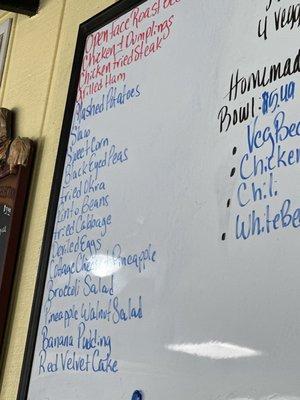 Open face Roast Bee
Chicken & Dumplings
Chicken Fried Steak
Grilled Ham
Mashed Potatoes
Slaw
Sweet Corn
Black Eyed Peas
Fried Okra
Pinto Beans
Fried Cabbage
Deviled Eggs
Cottage Cheese & Pineapple
Broccoli Salad
Pineapple Walnut Salad
Banana Pudding
Red Velvet Cake
4 Vegg
Homemad
Bowl:
• Veg Be
• Chicken
• Chili
• White Be